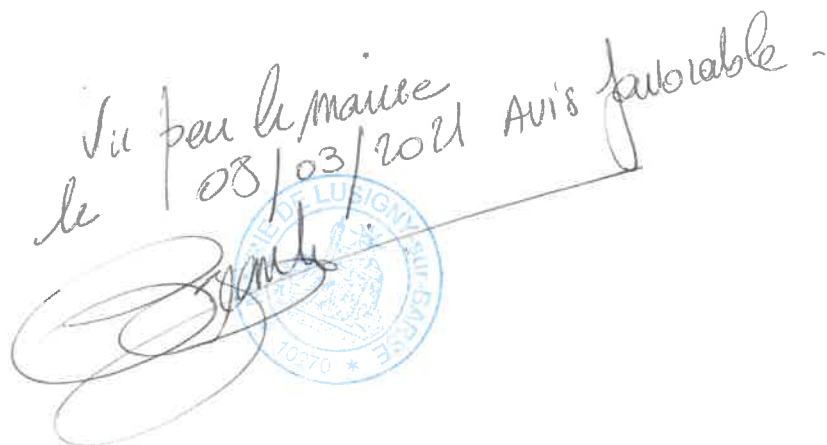 Vu par le maire
le 08/03/2021 Avis favorable -
MAIRIE DE LUSIGNY-sur-BARSE
10270 *